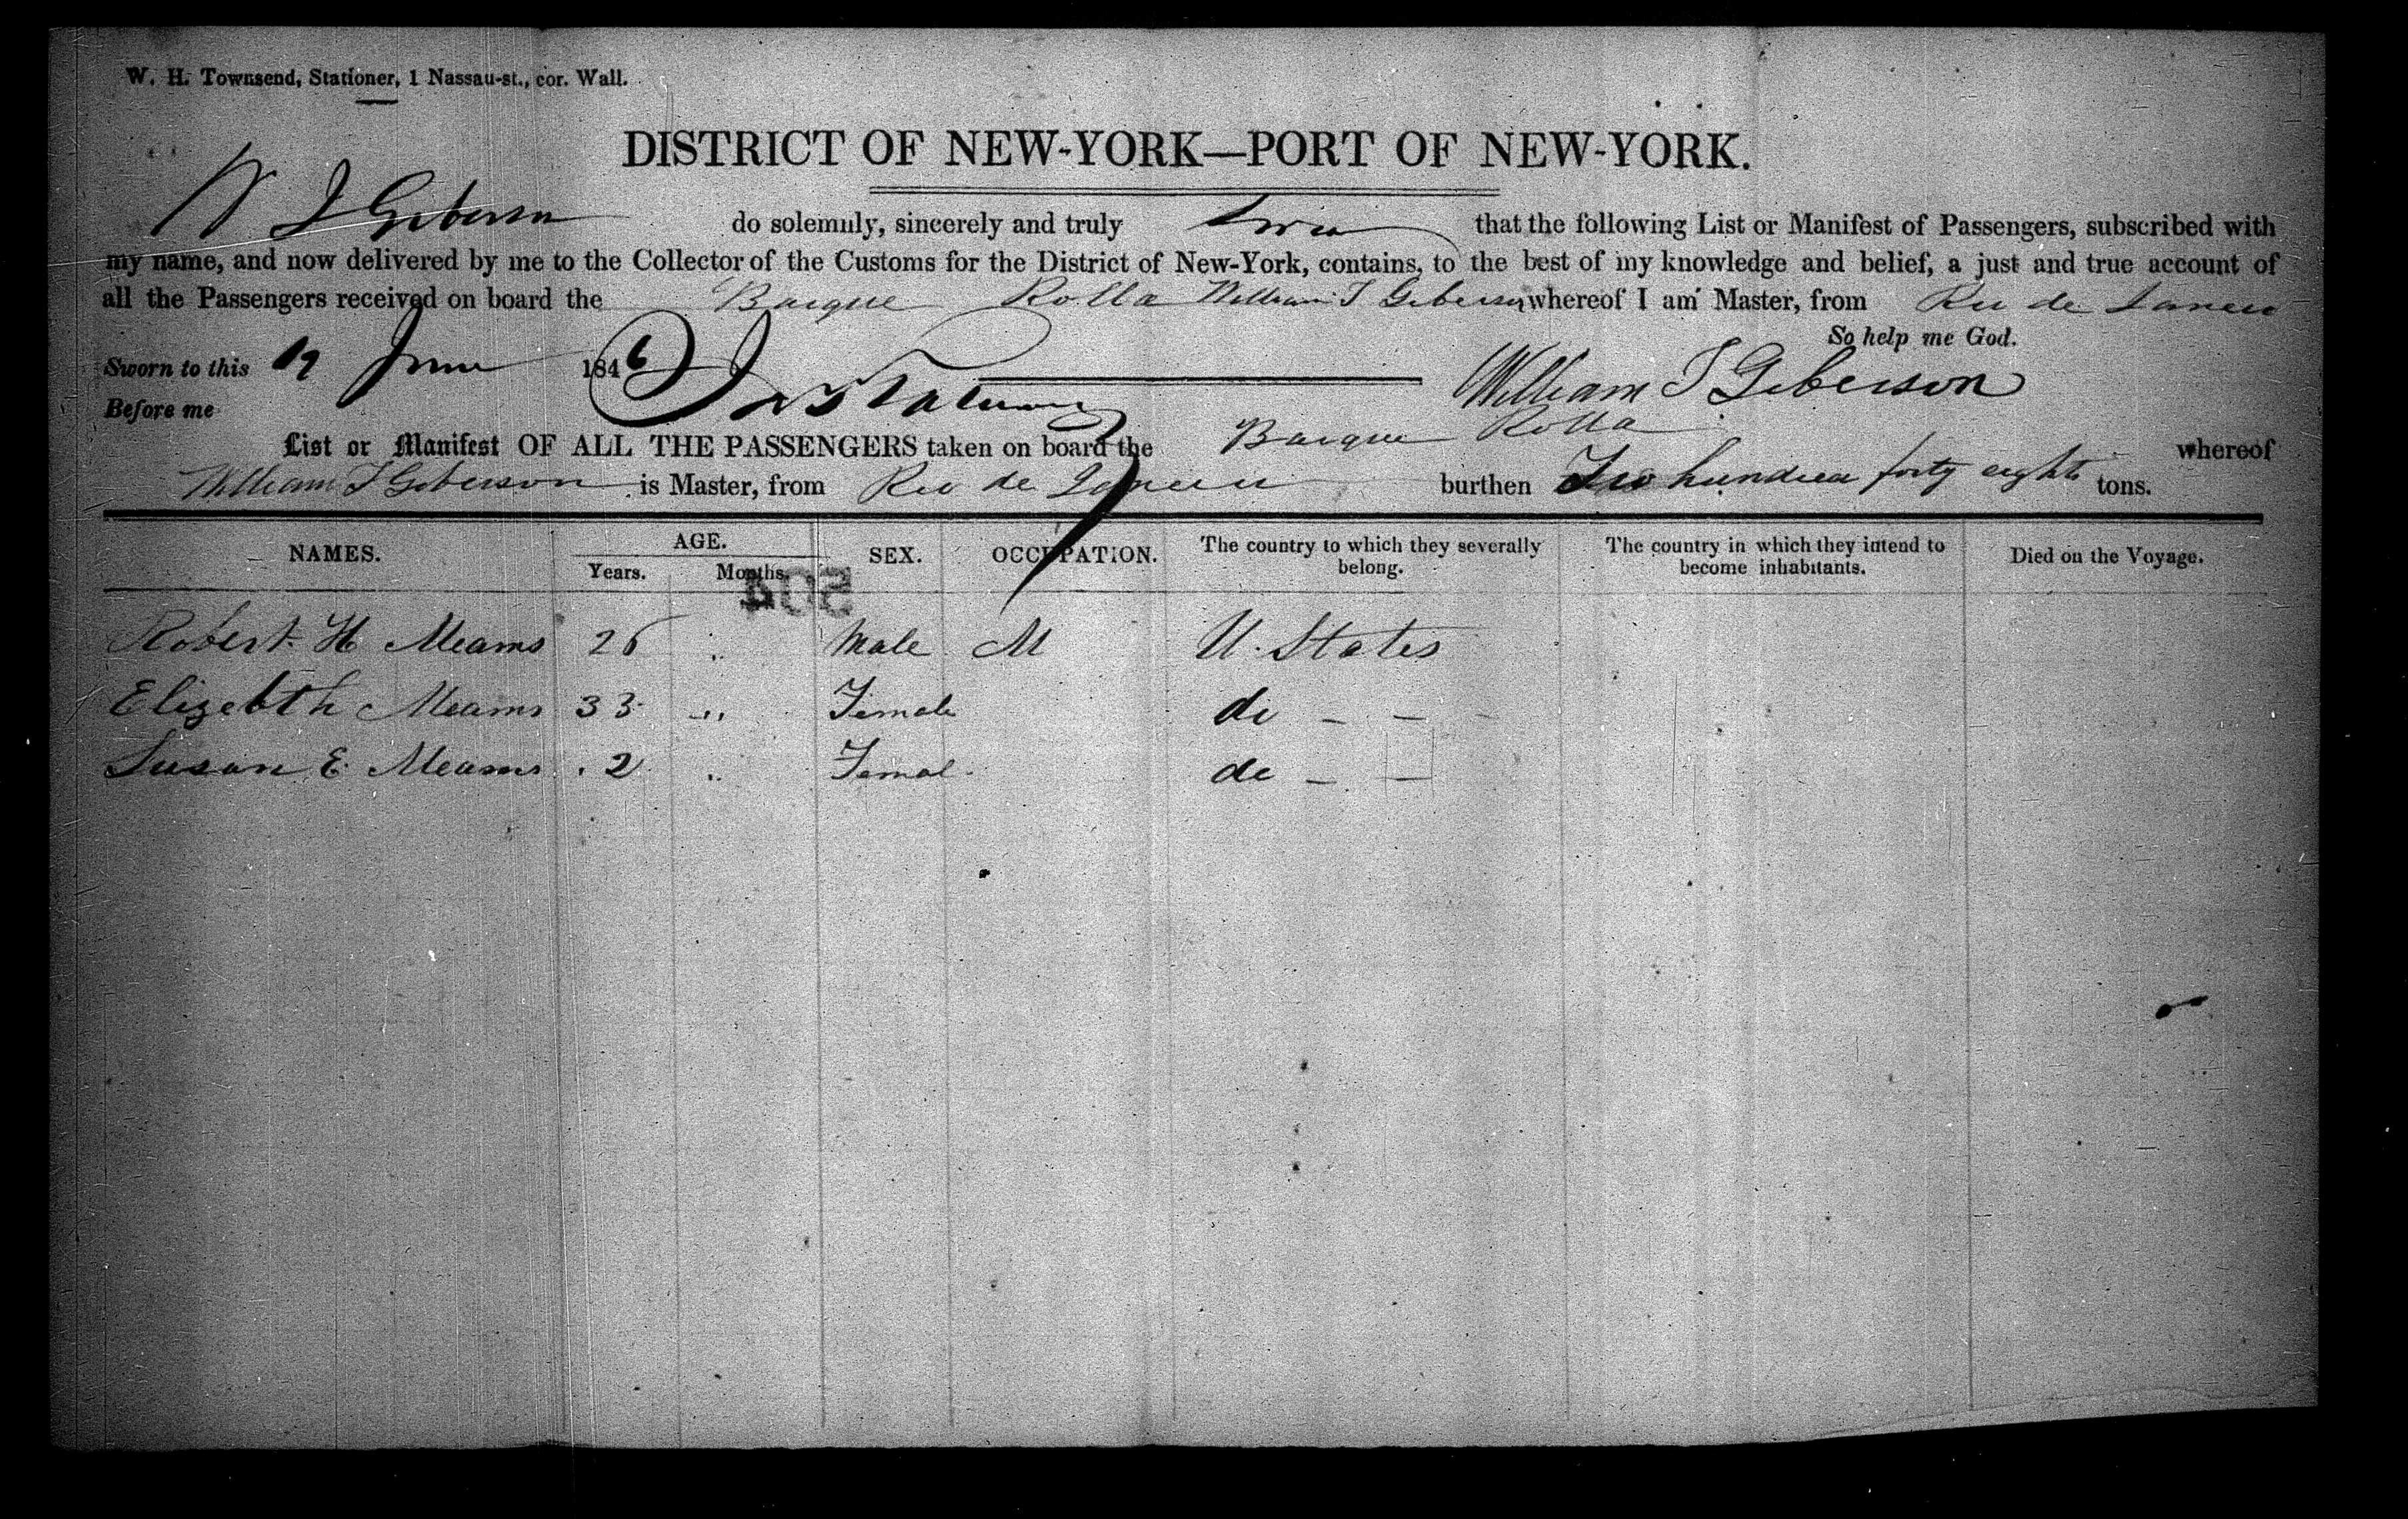 W. H. Townsend, Stationer, 1 Nassau-st., cor. Wall.
DISTRICT OF NEW-YORK—PORT OF NEW-YORK.
W T Giberson do solemnly, sincerely and truly that the following List or Manifest of Passengers, subscribed with
my name, and now delivered by me to the Collector of the Customs for the District of New-York, contains, to the best of my knowledge and belief, a just and true account of
all the Passengers received on board the Barque Rolla William T Giberson, whereof I am Master, from Rio de Janeiro
So help me God.
Sworn to this 19 June 1846 William T Giberson
Before me
List or Manifest OF ALL THE PASSENGERS taken on board the Barque Rolla whereof
William T Giberson is Master, from Rio de Janeiro burthen Two hundred forty eight tons.
NAMES. AGE. SEX. OCCUPATION. The country to which they severally belong. The country in which they intend to become inhabitants. Died on the Voyage.
Years. Months.
504
Robert H Mearns 26 " Male M U. States
Elizebth Mearns 33 " Female do - -
Susan E Mearns 2 " Femal do - -